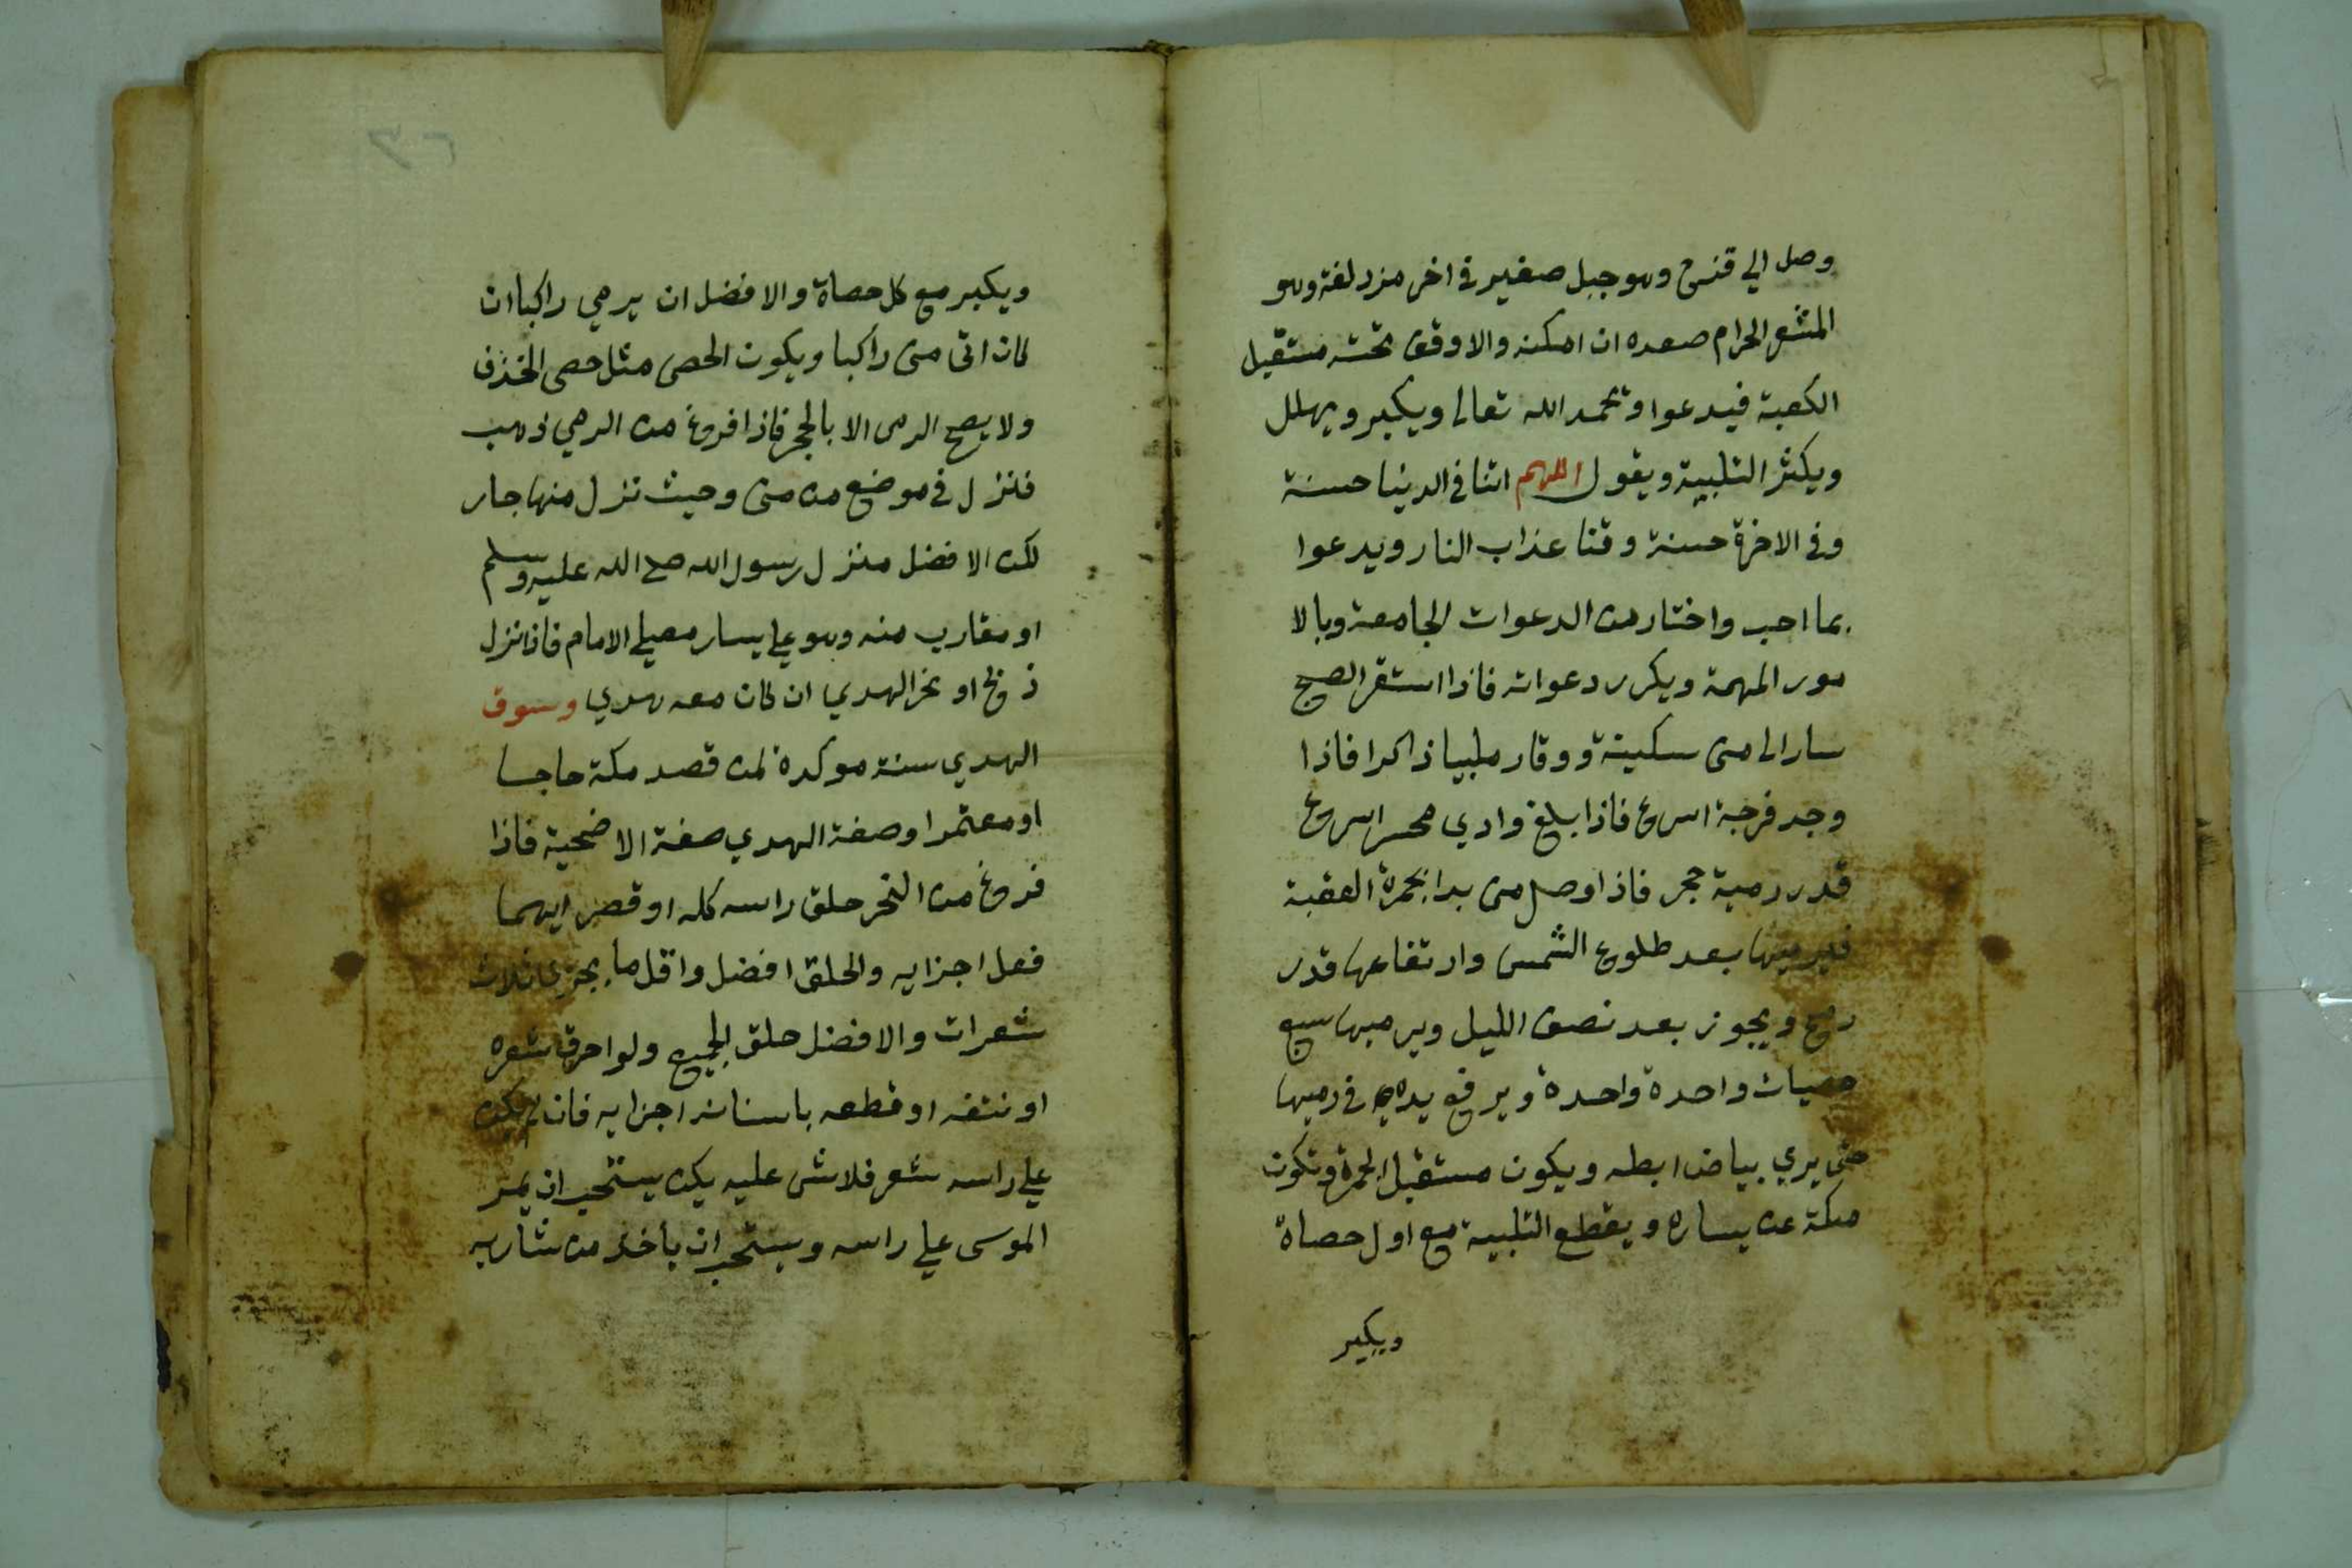 وصل الي قزح وهو جبل صغير في اخر مزدلفة وهو
المشعر الحرام صعده ان امكنه والا وقف تحته مستقبل
الكعبة فيدعوا وتحمد الله تعالى ويكبر ويهلل
ويكثر التلبية ويقول اللهم اتنا في الدنيا حسنة
وفي الاخرة حسنة وقنا عذاب النار ويدعوا
بما احب واختار من الدعوات الجامعة وبالا
مور المهمة ويكرر دعواته فاذا استقر الصبح
سار الى منى سكينة ووقار ملبيا ذاكرا فاذا
وجد فرجة اسرع فاذا بلغ وادي محسر اسرع
قدر رمية حجر فاذا وصل منى بدا بجمرة العقبة
فيرميها بعد طلوع الشمس وارتفاعها قدر
رمح ويجوز بعد نصف الليل ويرميها سبع
حصيات واحدة واحدة ويرفع يده في رميها
حتى يري بياض ابطه ويكون مستقبل الجمرة وتكون
مكة عن يساره ويقطع التلبية مع اول حصاة
ويكبر
ويكبر مع كل حصاة والافضل ان يرمي راكبا ان
كان اتى منى راكبا ويكون الحصى مثل حصى الخذف
ولا يصح الرمى الا بالحجر فاذا فرغ من الرمي ذهب
فنزل في موضع من منى وحيث نزل منها جاز
لكن الافضل منزل رسول الله صلى الله عليه وسلم
او مقارب منه وهو علي يسار مصلي الامام فاذا نزل
ذبح او نحر الهدي ان كان معه هدي وسوق
الهدي سنة موكدة لمن قصد مكة حاجا
او معتمرا وصفة الهدي صفة الاضحية فاذا
فرغ من النحر حلق راسه كله او قصر ايهما
فعل اجزايه والحلق افضل واقل ما يجزى ثلاث
شعرات والافضل حلق الجميع ولو احرق شعره
او نتفه او قطعه باسنانه اجزايه فان لم يكن
علي راسه شعر فلا شى عليه يكن يستحب ان يمر
الموسى علي راسه ويستحب ان يأخذ من شاربه